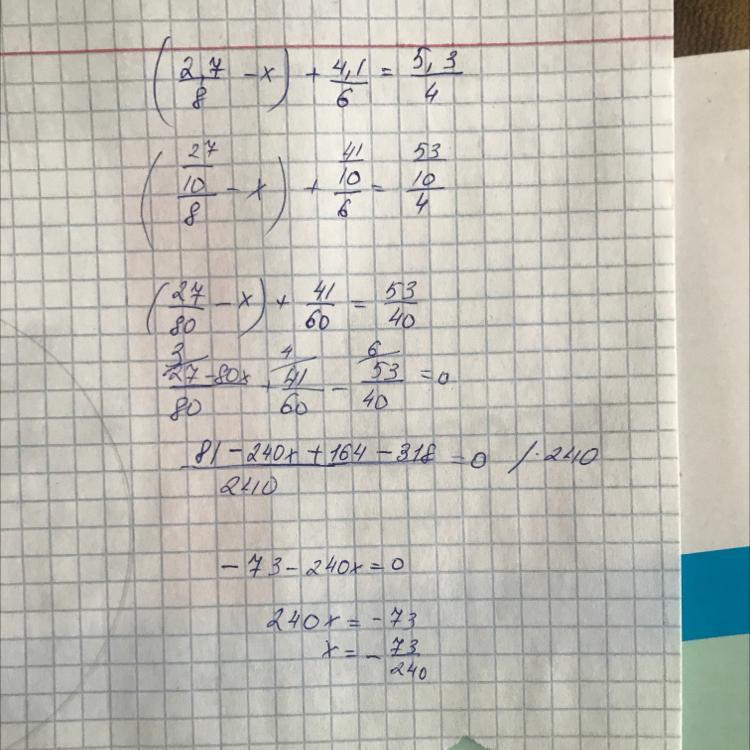 (2,7/8 - x) + 4,1/6 = 5,3/4
(27/10/8 - x) + 41/10/6 = 53/10/4
(27/80 - x) + 41/60 = 53/40
3/ 4/ 6/
27-80x/80 + 41/60 - 53/40 = 0
81-240x+164-318/240 = 0 /·240
-73-240x=0
240x=-73
x=-73/240